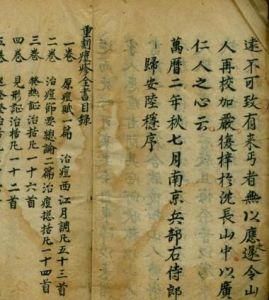 遠不可致有來丐者無以應遂令山
人再校加嚴後梓於沈長山中以廣
仁人之心云
萬曆二年秋七月南京兵部右侍郎
歸安陸穩序
重刻痘疹全書目錄
一卷 原痘賦一篇 治痘西江月調凡五十三首
二卷 治痘節要總論二篇治痘捴括凡一十四首
三卷 發熱証治捴括凡一十六首
四卷 見形証治捴括凡一十二首
五卷